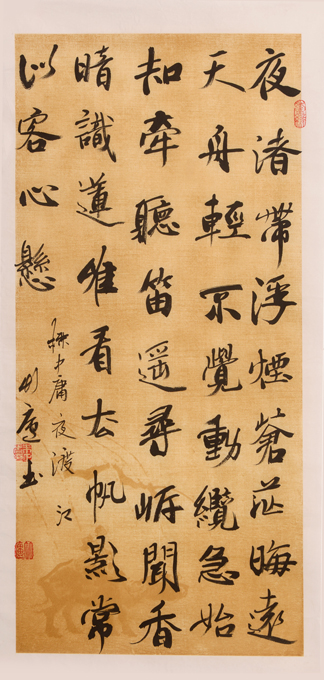 夜渚帶浮煙蒼茫晦遠
天舟輕不覺動纜急始
知牽聽笛遙尋岸聞香
暗識蓮唯看去帆影常
似客心懸
柳中庸夜渡江